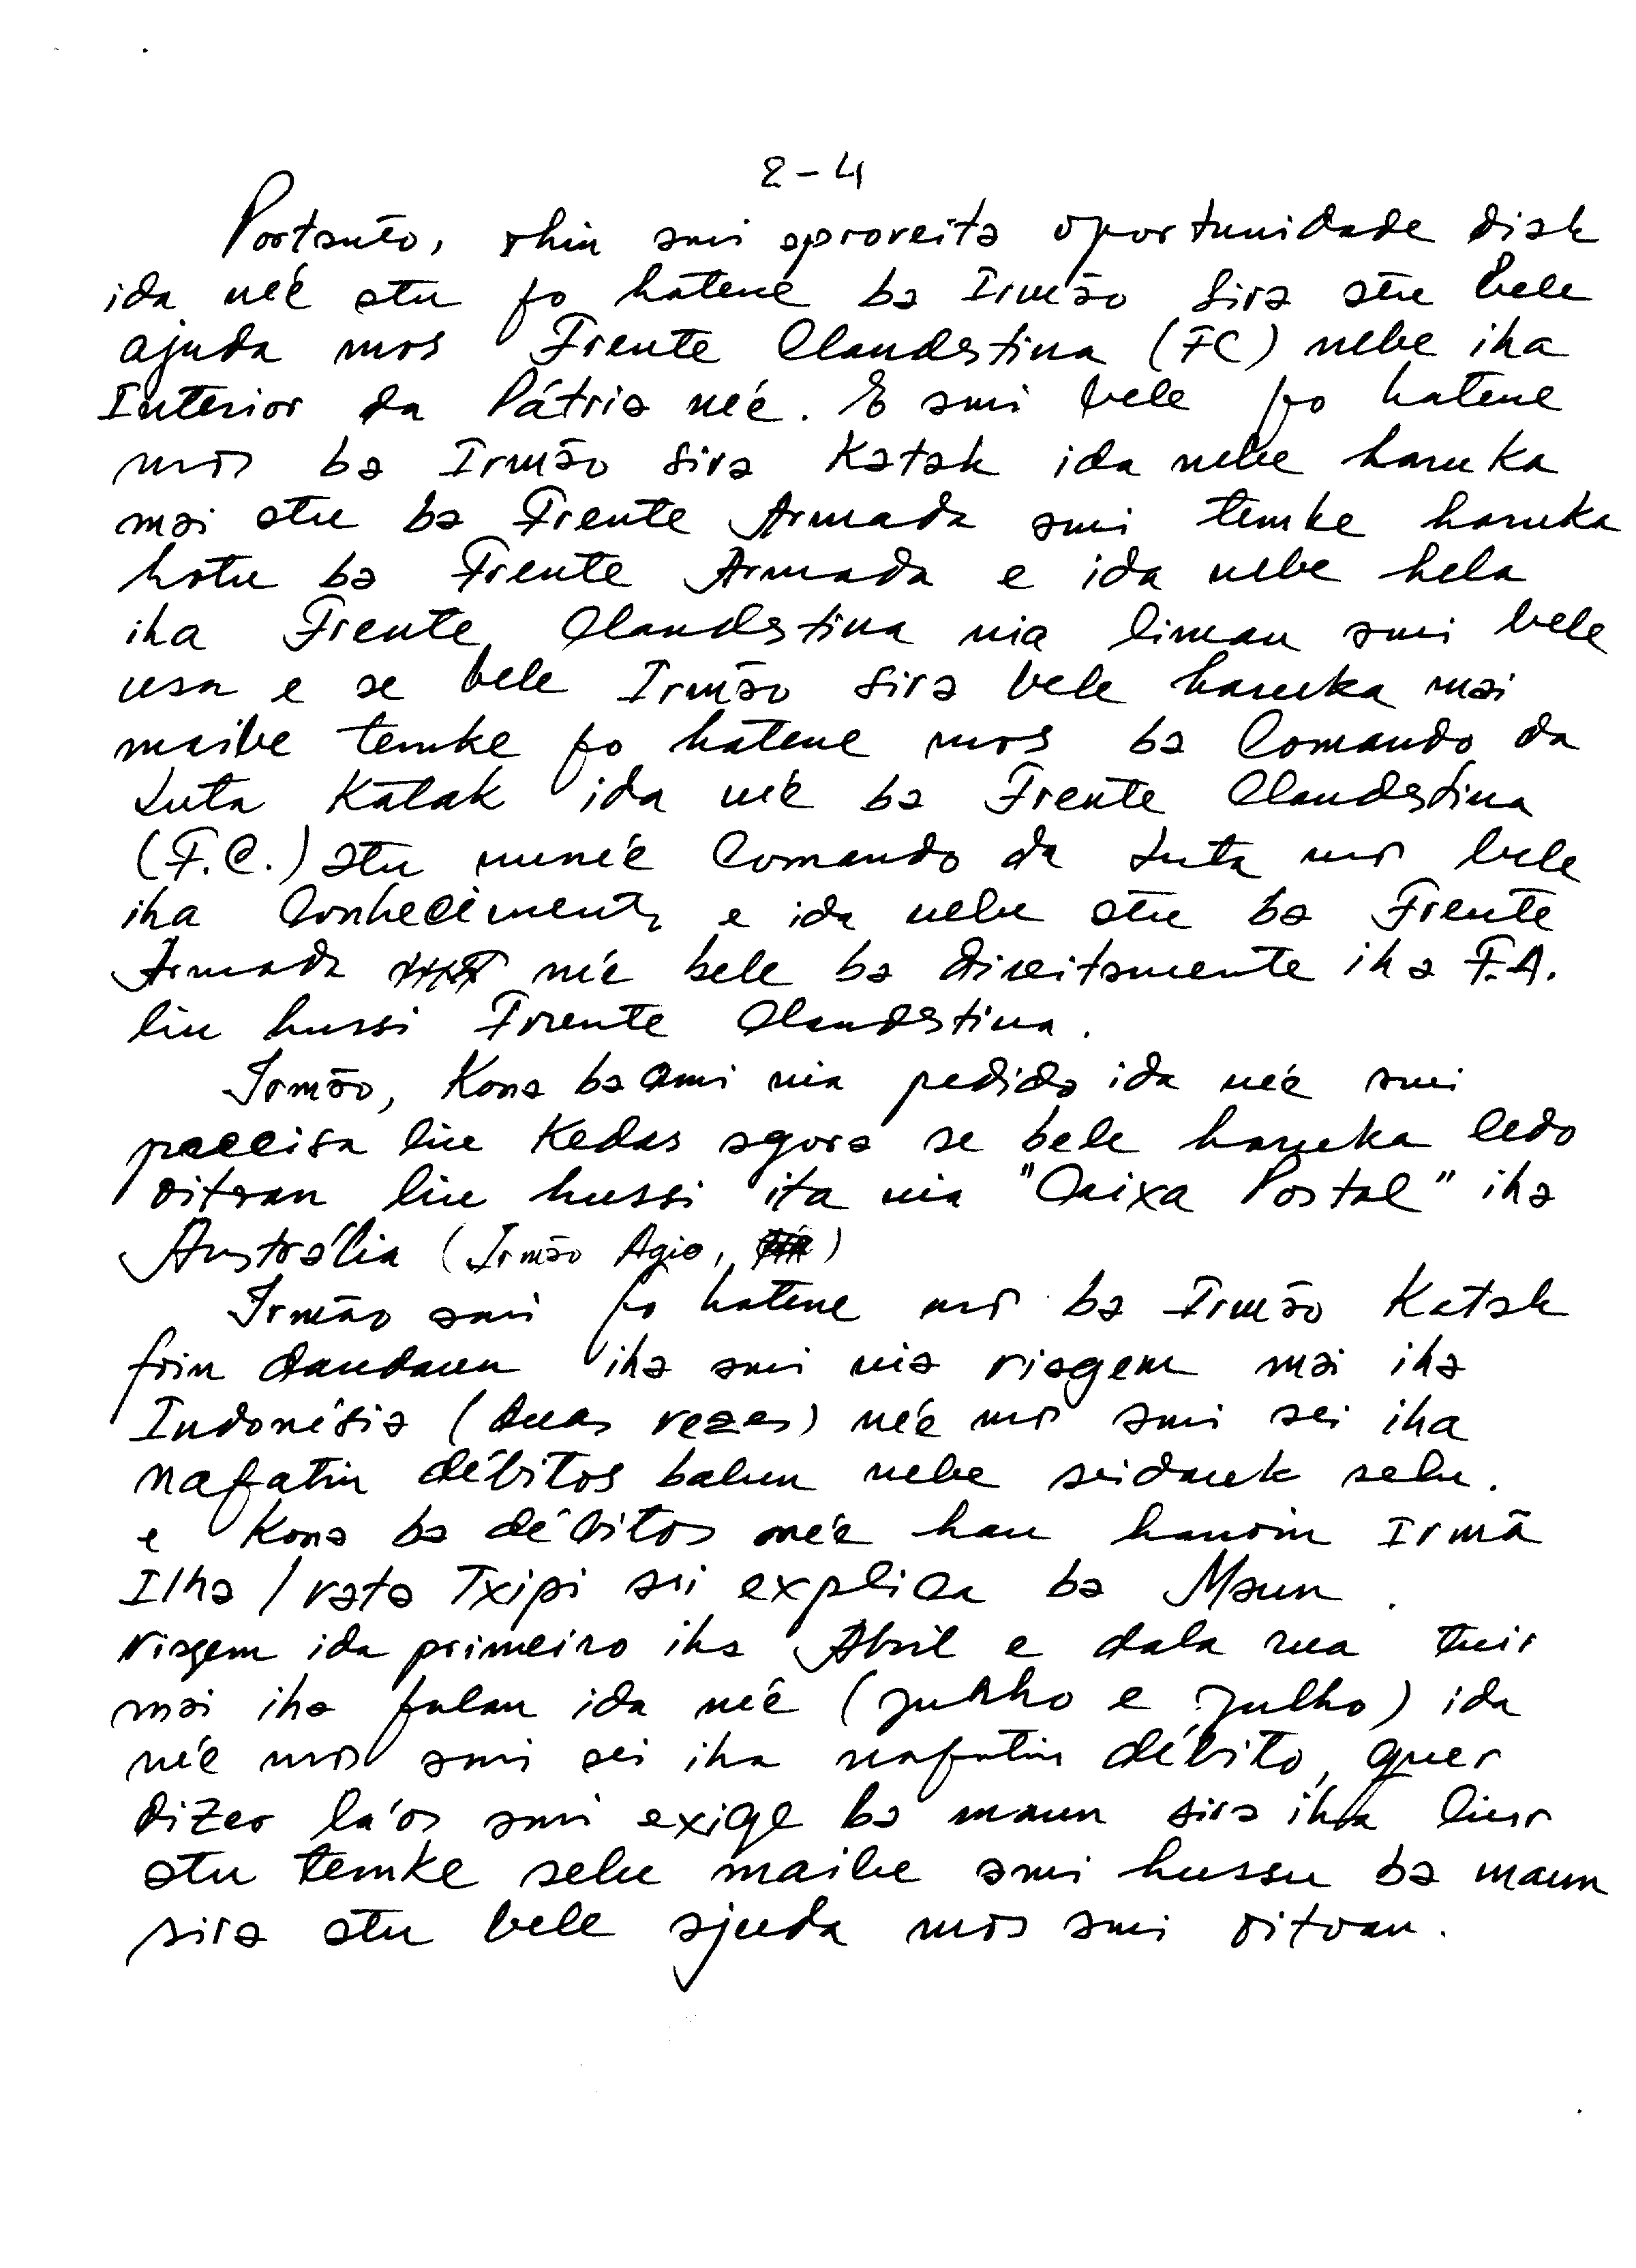 2-4
Portanto, ohin ami aproveita oportunidade diak
ida né'e atu fo hatene ba Irmão Sira atu bele
ajuda mos Frente Clandestina (FC) nebe iha
Interior da Pátria né'e. E ami bele fo hatene
mos ba Irmão Sira Katak ida nebe haruka
mai atu ba Frente Armada ami temke haruka
hotu ba Frente Armada e ida nebe hela
iha Frente Clandestina nia liman ami bele
usa e se bele Irmão Sira bele haruka mai
maibe temke fo hatene mos ba Comando da
Luta Katak ida né'e ba Frente Clandestina
(F.C.) atu nuné'e Comando da Luta mos bele
iha Conhecimento e ida nebe atu ba Frente
Armada né'e bele ba direitamente iha F.A.
liu hussi Frente Clandestina.
Irmão, Kona ba ami nia pedido ida né'e ami
precisa liu Kedas agora se bele haruka ledo
oitoan liu hussi ita nia "Caixa Postal" iha
Austrália (Irmão Agio, )
Irmão ami fo hatene mos ba Irmão Katak
foin daudaun iha ami nia viagem mai iha
Indonésia (duas vezes) né'e mos ami sei iha
nafatin débitos balun nebe seidauk selu.
e Kona ba débitos né'e hau hanoin Irmã
Ilha / vata Txipi sei explica ba Maun.
Viagem ida primeiro iha Abril e dala rua tuir
mai iha fulan ida né'e (Junho e Julho) ida
né'e mos ami sei iha nafatin débito, quer
dizer la'os ami exige ba maun sira iha liur
atu temke selu maibe ami hussu ba maun
sira atu bele ajuda mos ami oitoan.